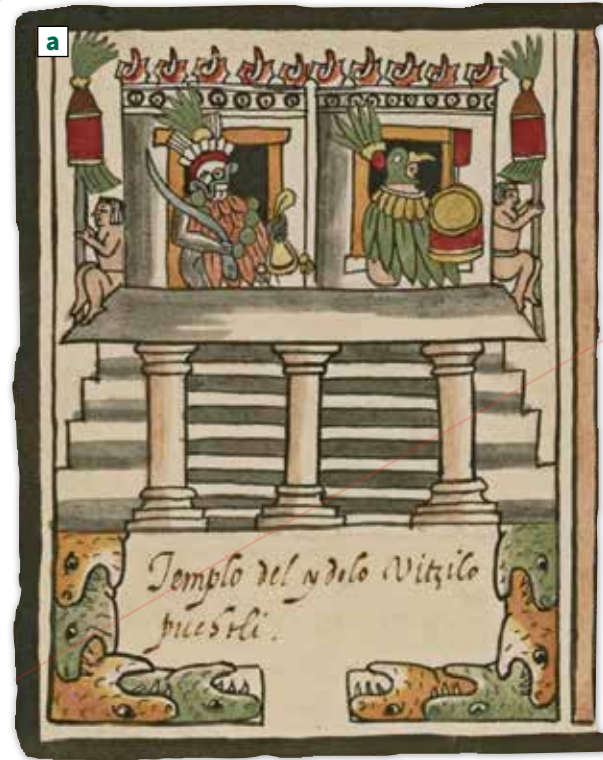 a
Templo del ydolo Vitzilo
puchtli.